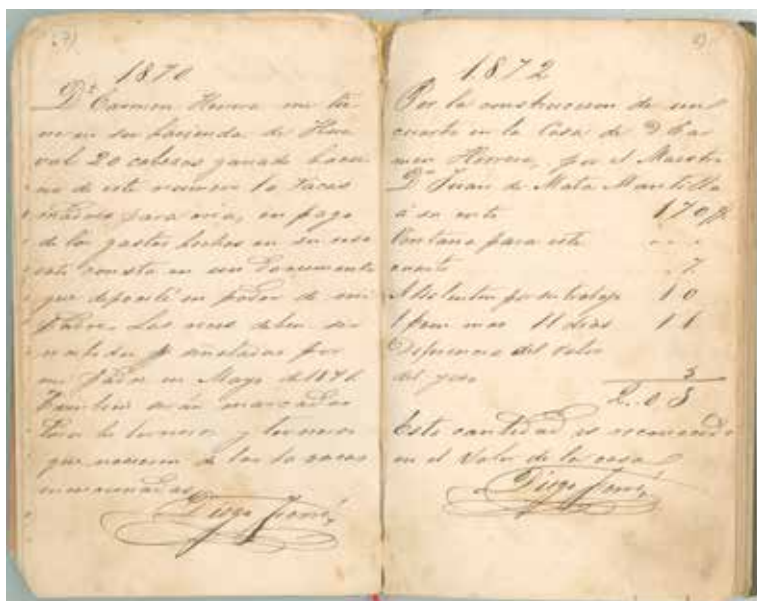 1870
Dª Carmen Herrera me tie-
ne en su hacienda de
val 20 cabezas ganado bacu-
no de este numero 10 vacas
madres para cria, en pago
de los gastos hechos en su
consta en un Documento
que deposité en poder de mi
Padre. Las deben ser
y señaladas por
mi Padre en Mayo de 1871.
Tambien serán marcados
los terneros y terneras
que nacieren de las 10 vacas
mencionadas.
Diego
1872
Por la construccion de un
cuarto en la Casa de Dª Car-
men Herrera, por el Maestro
Dn Juan de Mata Mantilla
170 p
Ventana para este
cuarto 7
por su trabajo 10
1 peon mas 11 dias 11
Diferencia del valor
del yeso 3
Esta cantidad es reconocida
en el Valor de la casa
Diego